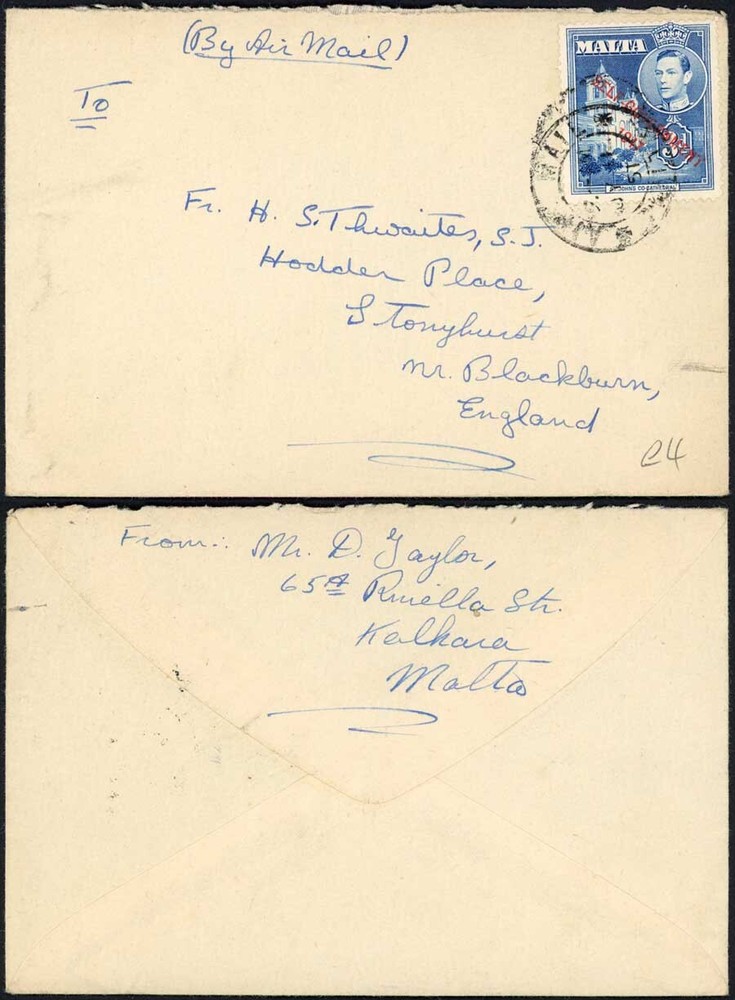 (By Air Mail)
To
MALTA
SELF-GOVERNMENT
1947
ST. JOHNS CO-CATHEDRAL
Fr. H. S. Thwaites, S.J.
Hodder Place,
Stonyhurst
nr. Blackburn,
England
From:
Mr. D. Taylor,
65A Rinella Str.
Kalkara
Malta